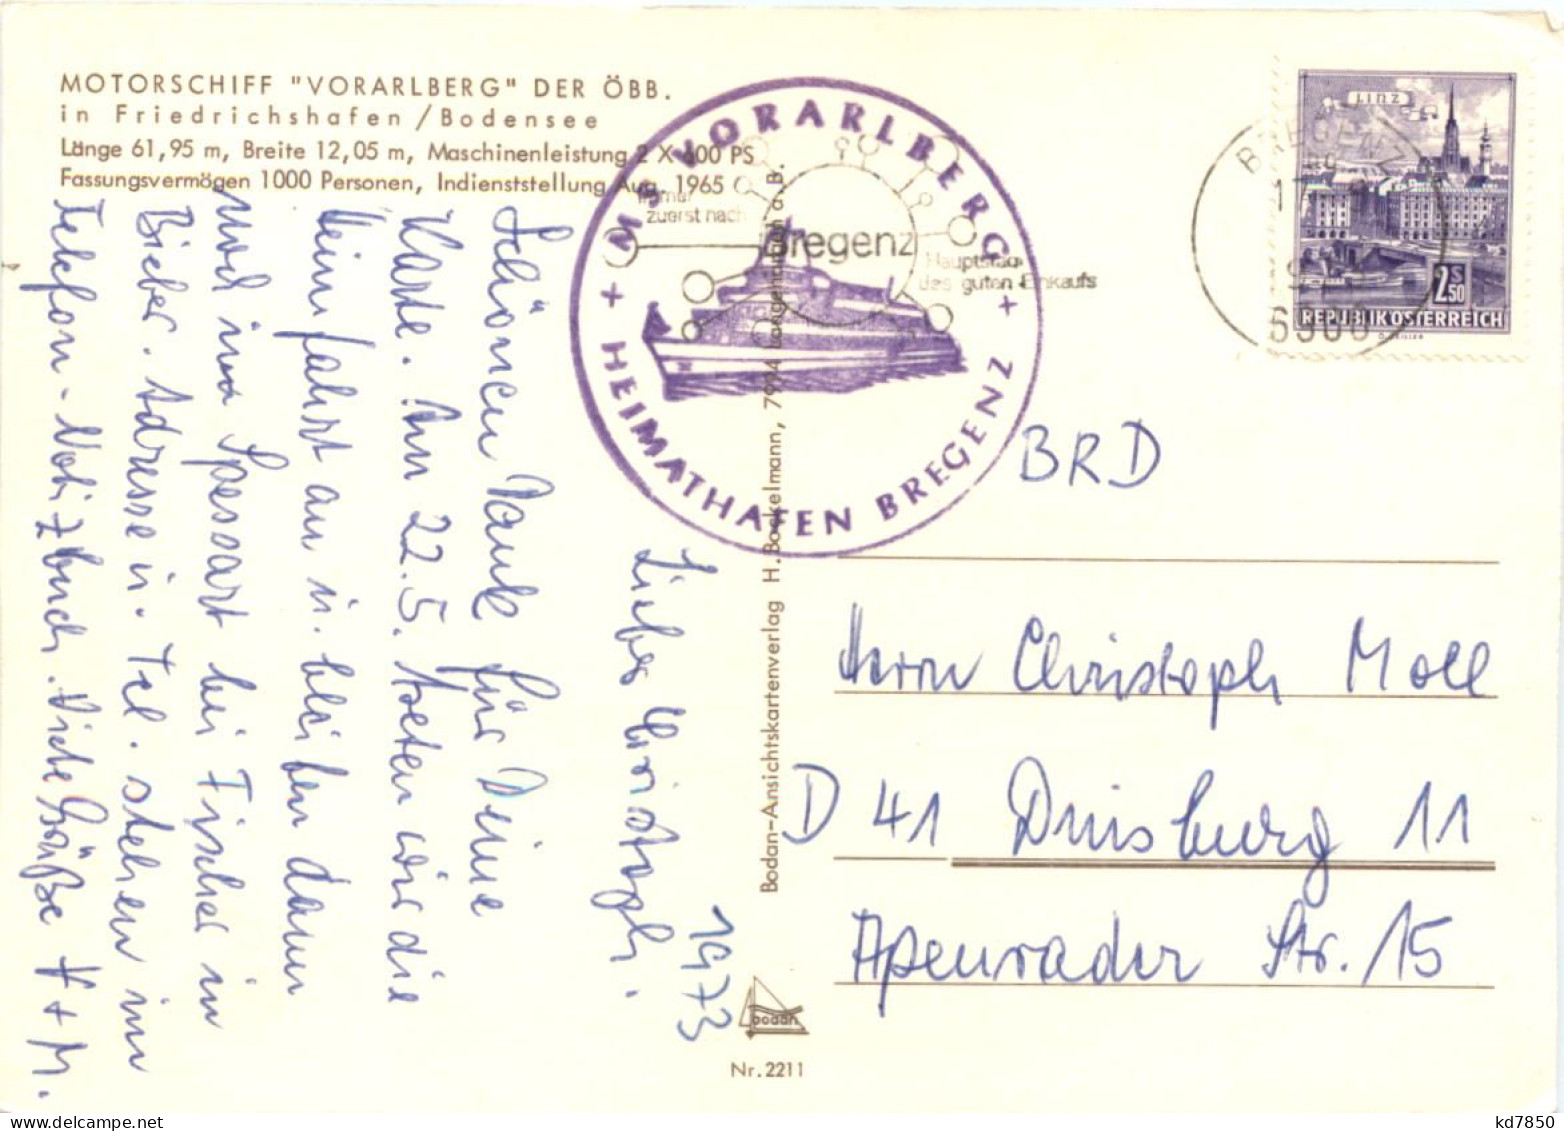 MOTORSCHIFF "VORARLBERG" DER ÖBB.
in Friedrichshafen/Bodensee
Länge 61,95 m, Breite 12,05 m, Maschinenleistung 2 X 600 PS
Fassungsvermögen 1000 Personen, Indienststellung Aug. 1965
1973
Lieber Christoph.
Schönen Dank für Deine
Karte. Am 22.5. treten wir die
Heimfahrt an u. bleiben dann
noch im Spessart bei Fischer in
Bieber. Adresse u. Tel. stehen im
Telefon-Notizbuch. Viele Grüße V + M.
MS VORARLBERG
+ HEIMATHAFEN BREGENZ +
immer
zuerst nach
Bregenz
Hauptstadt
des guten Einkaufs
Bodan-Ansichtskartenverlag H. Bockelmann, 7994 Langenargen a. B.
bodan
Nr. 2211
BREGENZ
6900
LINZ
2 S 50
REPUBLIK ÖSTERREICH
BRD
Herrn Christoph Moll
D 41 Duisburg 11
Apenrader Str. 15
kd7850